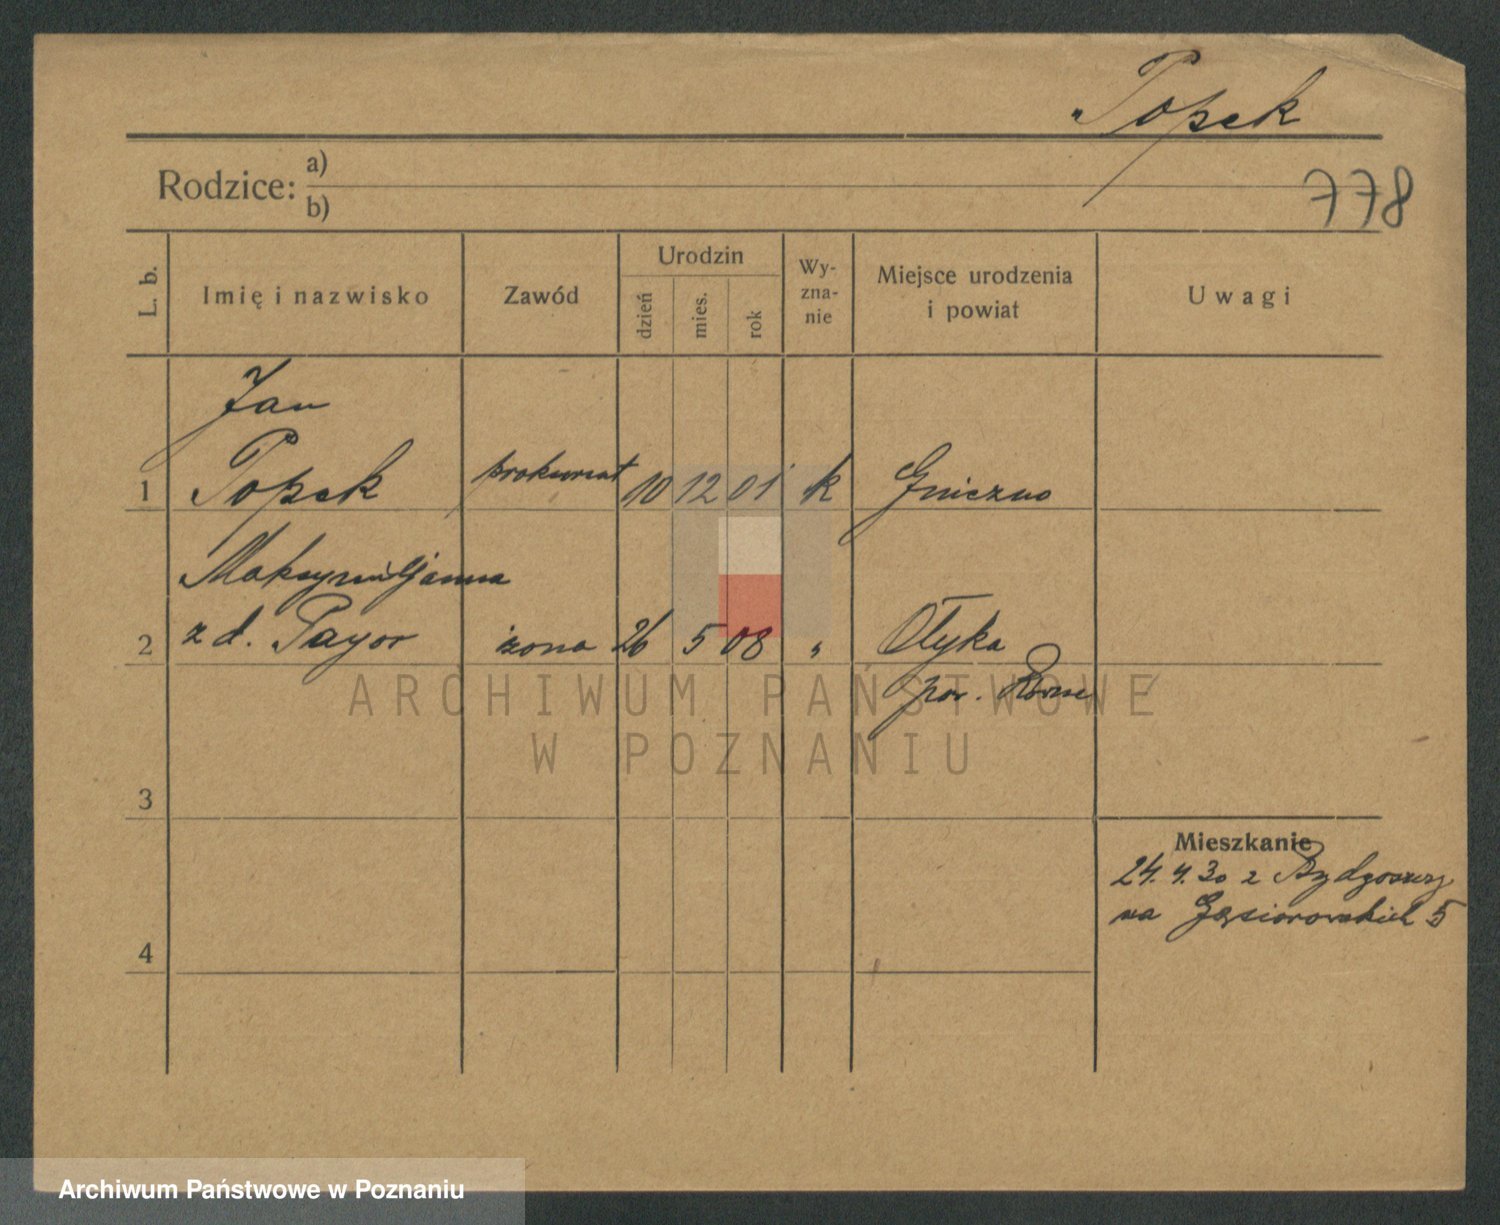 Topek
Rodzice: a)
b)
778
L. b.
Imię i nazwisko
Zawód
Urodzin
dzień
mies.
rok
Wy-
zna-
nie
Miejsce urodzenia
i powiat
Uwagi
Jan
1 Topek prokurent 10 12 01 k Gniezno
Maksymiljanna
2 z d. Payor żona 26 5 08 " Ołyka
pow. Równe
ARCHIWUM PAŃSTWOWE
W POZNANIU
3
Mieszkanie
24. 4. 30 z Bydgoszczy
na Gąsiorowskich 5
4
Archiwum Państwowe w Poznaniu